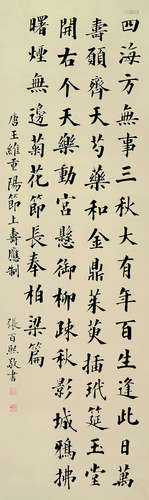 四海方無事三秋大有年百生逢此日萬
壽願齊天芍藥和金鼎茱萸插玳筵玉堂
開右个天樂動宮懸御柳疎秋影城鴉拂
曙煙無邊菊花節長奉柏梁篇
唐王維重陽節上壽應制
張百熙敬書